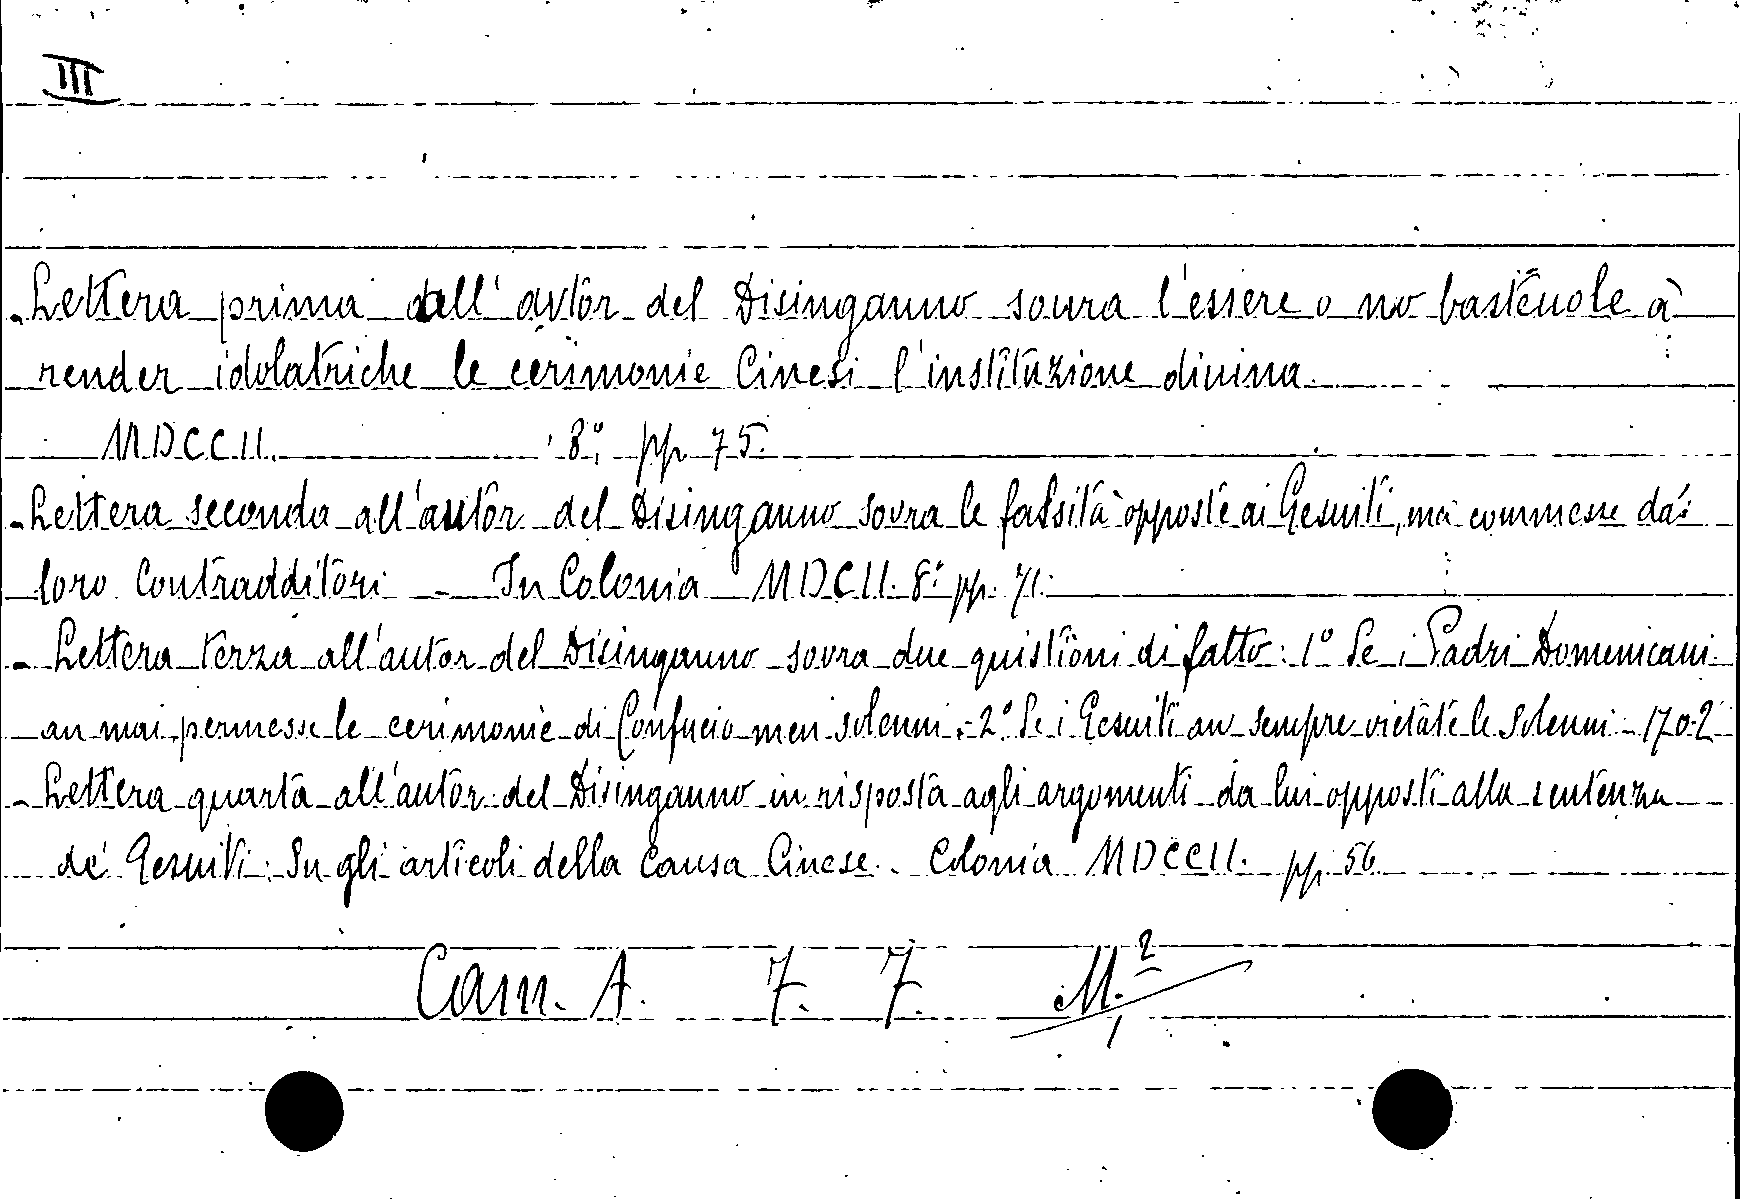 III
- Lettera prima dall' autor del Disinganno soura l'essere o no basteuole à
render idolatriche le cerimonie Cinesi l'instituzione diuina.
MDCCII. 8º, pp. 75.
- Lettera seconda all'autor del Disinganno sovra le falsità opposte ai Gesuiti, ma commesse da'
loro Contradditori - In Colonia MDCII. 8º pp. 71.
- Lettera terza all'autor del Disinganno sovra due quistioni di fatto: 1º Se i Padri Domenicani
an mai permesse le cerimonie di Confucio men solenni, - 2º Se i Gesuiti an sempre vietate le solenni - 1702
- Lettera quarta all'autor del Disinganno in risposta agli argomenti da lui opposti alla sentenza
de' Gesuiti. Su gli articoli della Causa Cinese. Colonia MDCCII. pp. 56
Cam. A. 7. 7. M.2